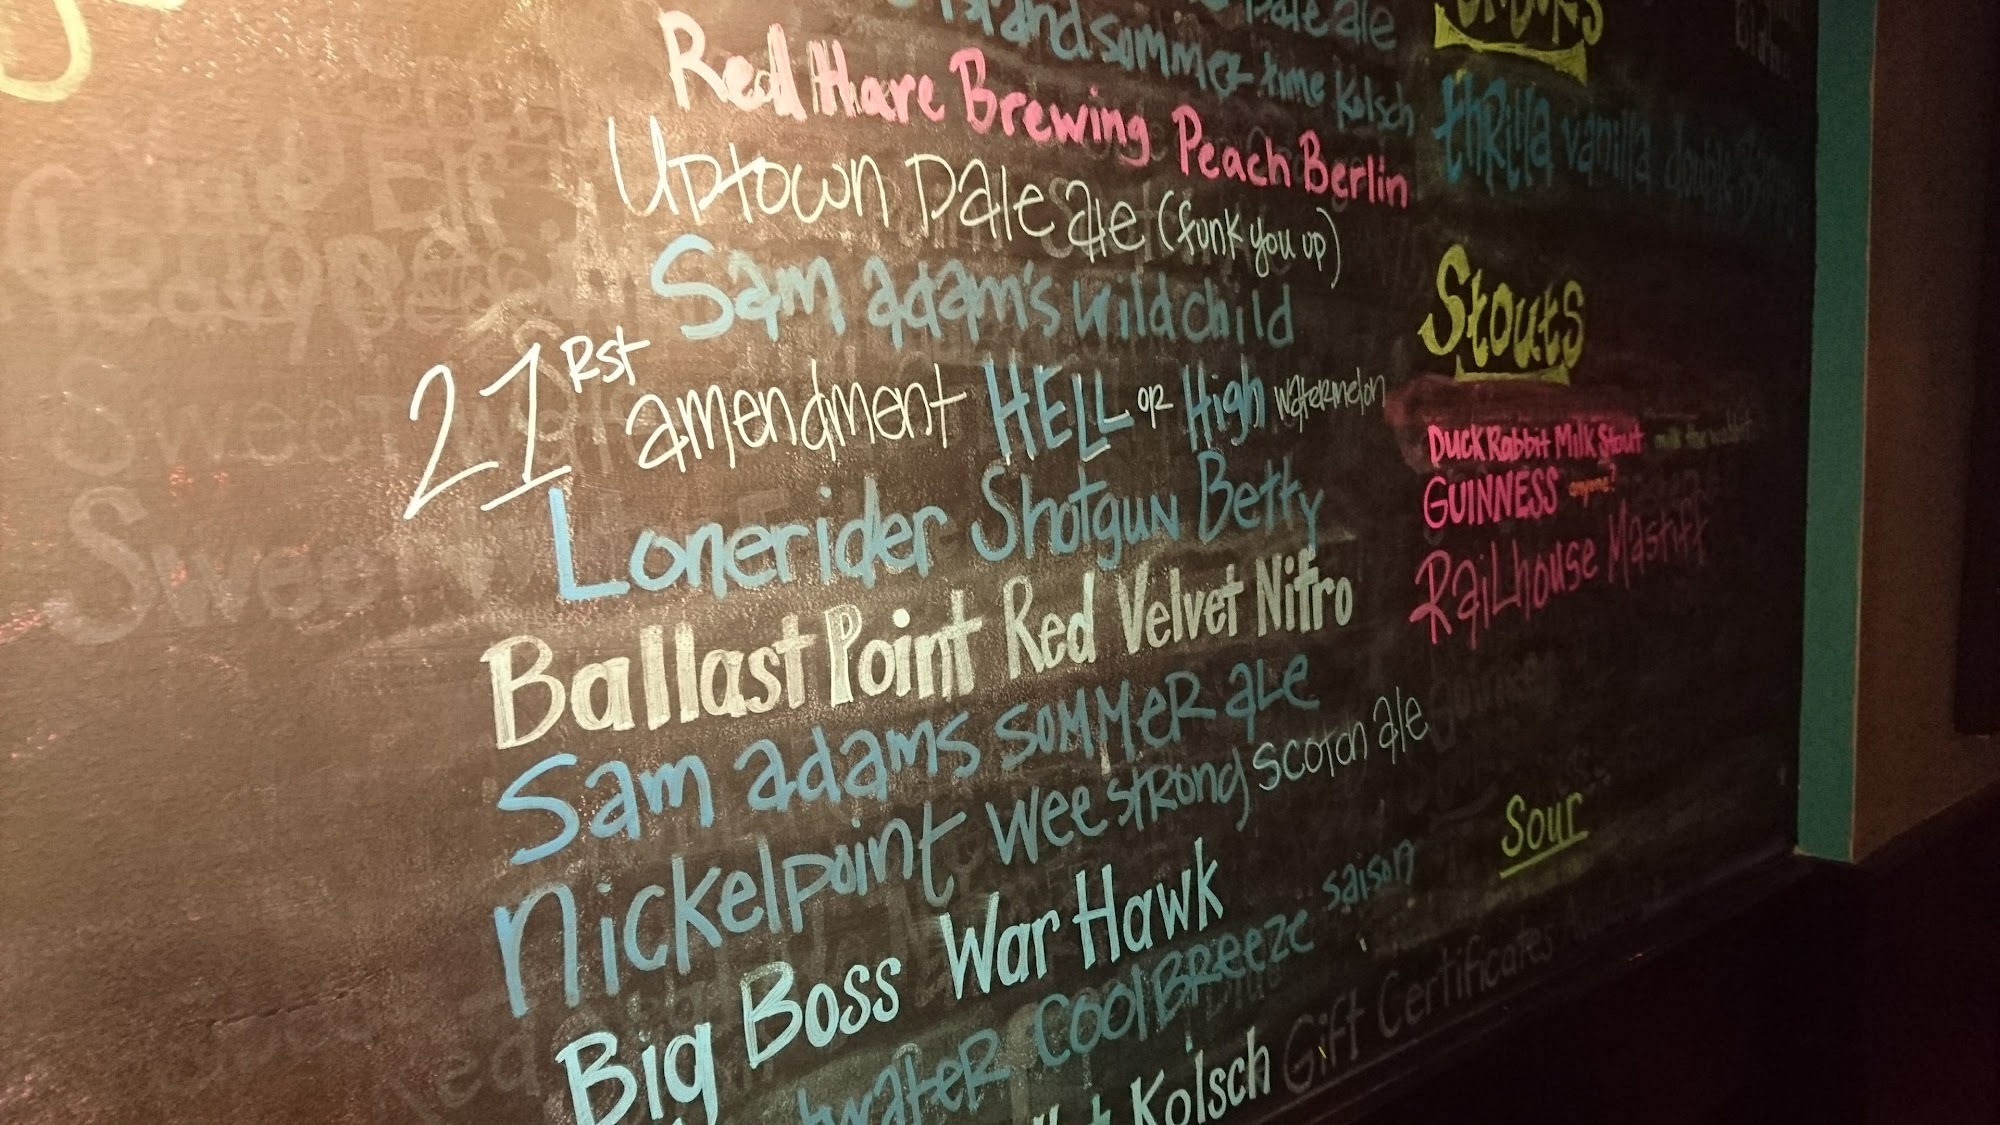 Pale ale
Island sommer time Kolsch
Red Hare Brewing Peach Berlin
Uptown Pale ale (funk you up)
Sam adam's wild child
21Rst amendment HELL or High watermelon
Lonerider Shotgun Betty
Ballast Point Red Velvet Nitro
Sam adams sommer ale
nickelpoint wee strong scotch ale
Big Boss War Hawk
water cool Breeze saison
Kolsch
thrilla vanilla double
Stouts
Duck Rabbit Milk Stout milk the
GUINNESS anyone?
Railhouse Mastiff
Sour
Gift Certificates